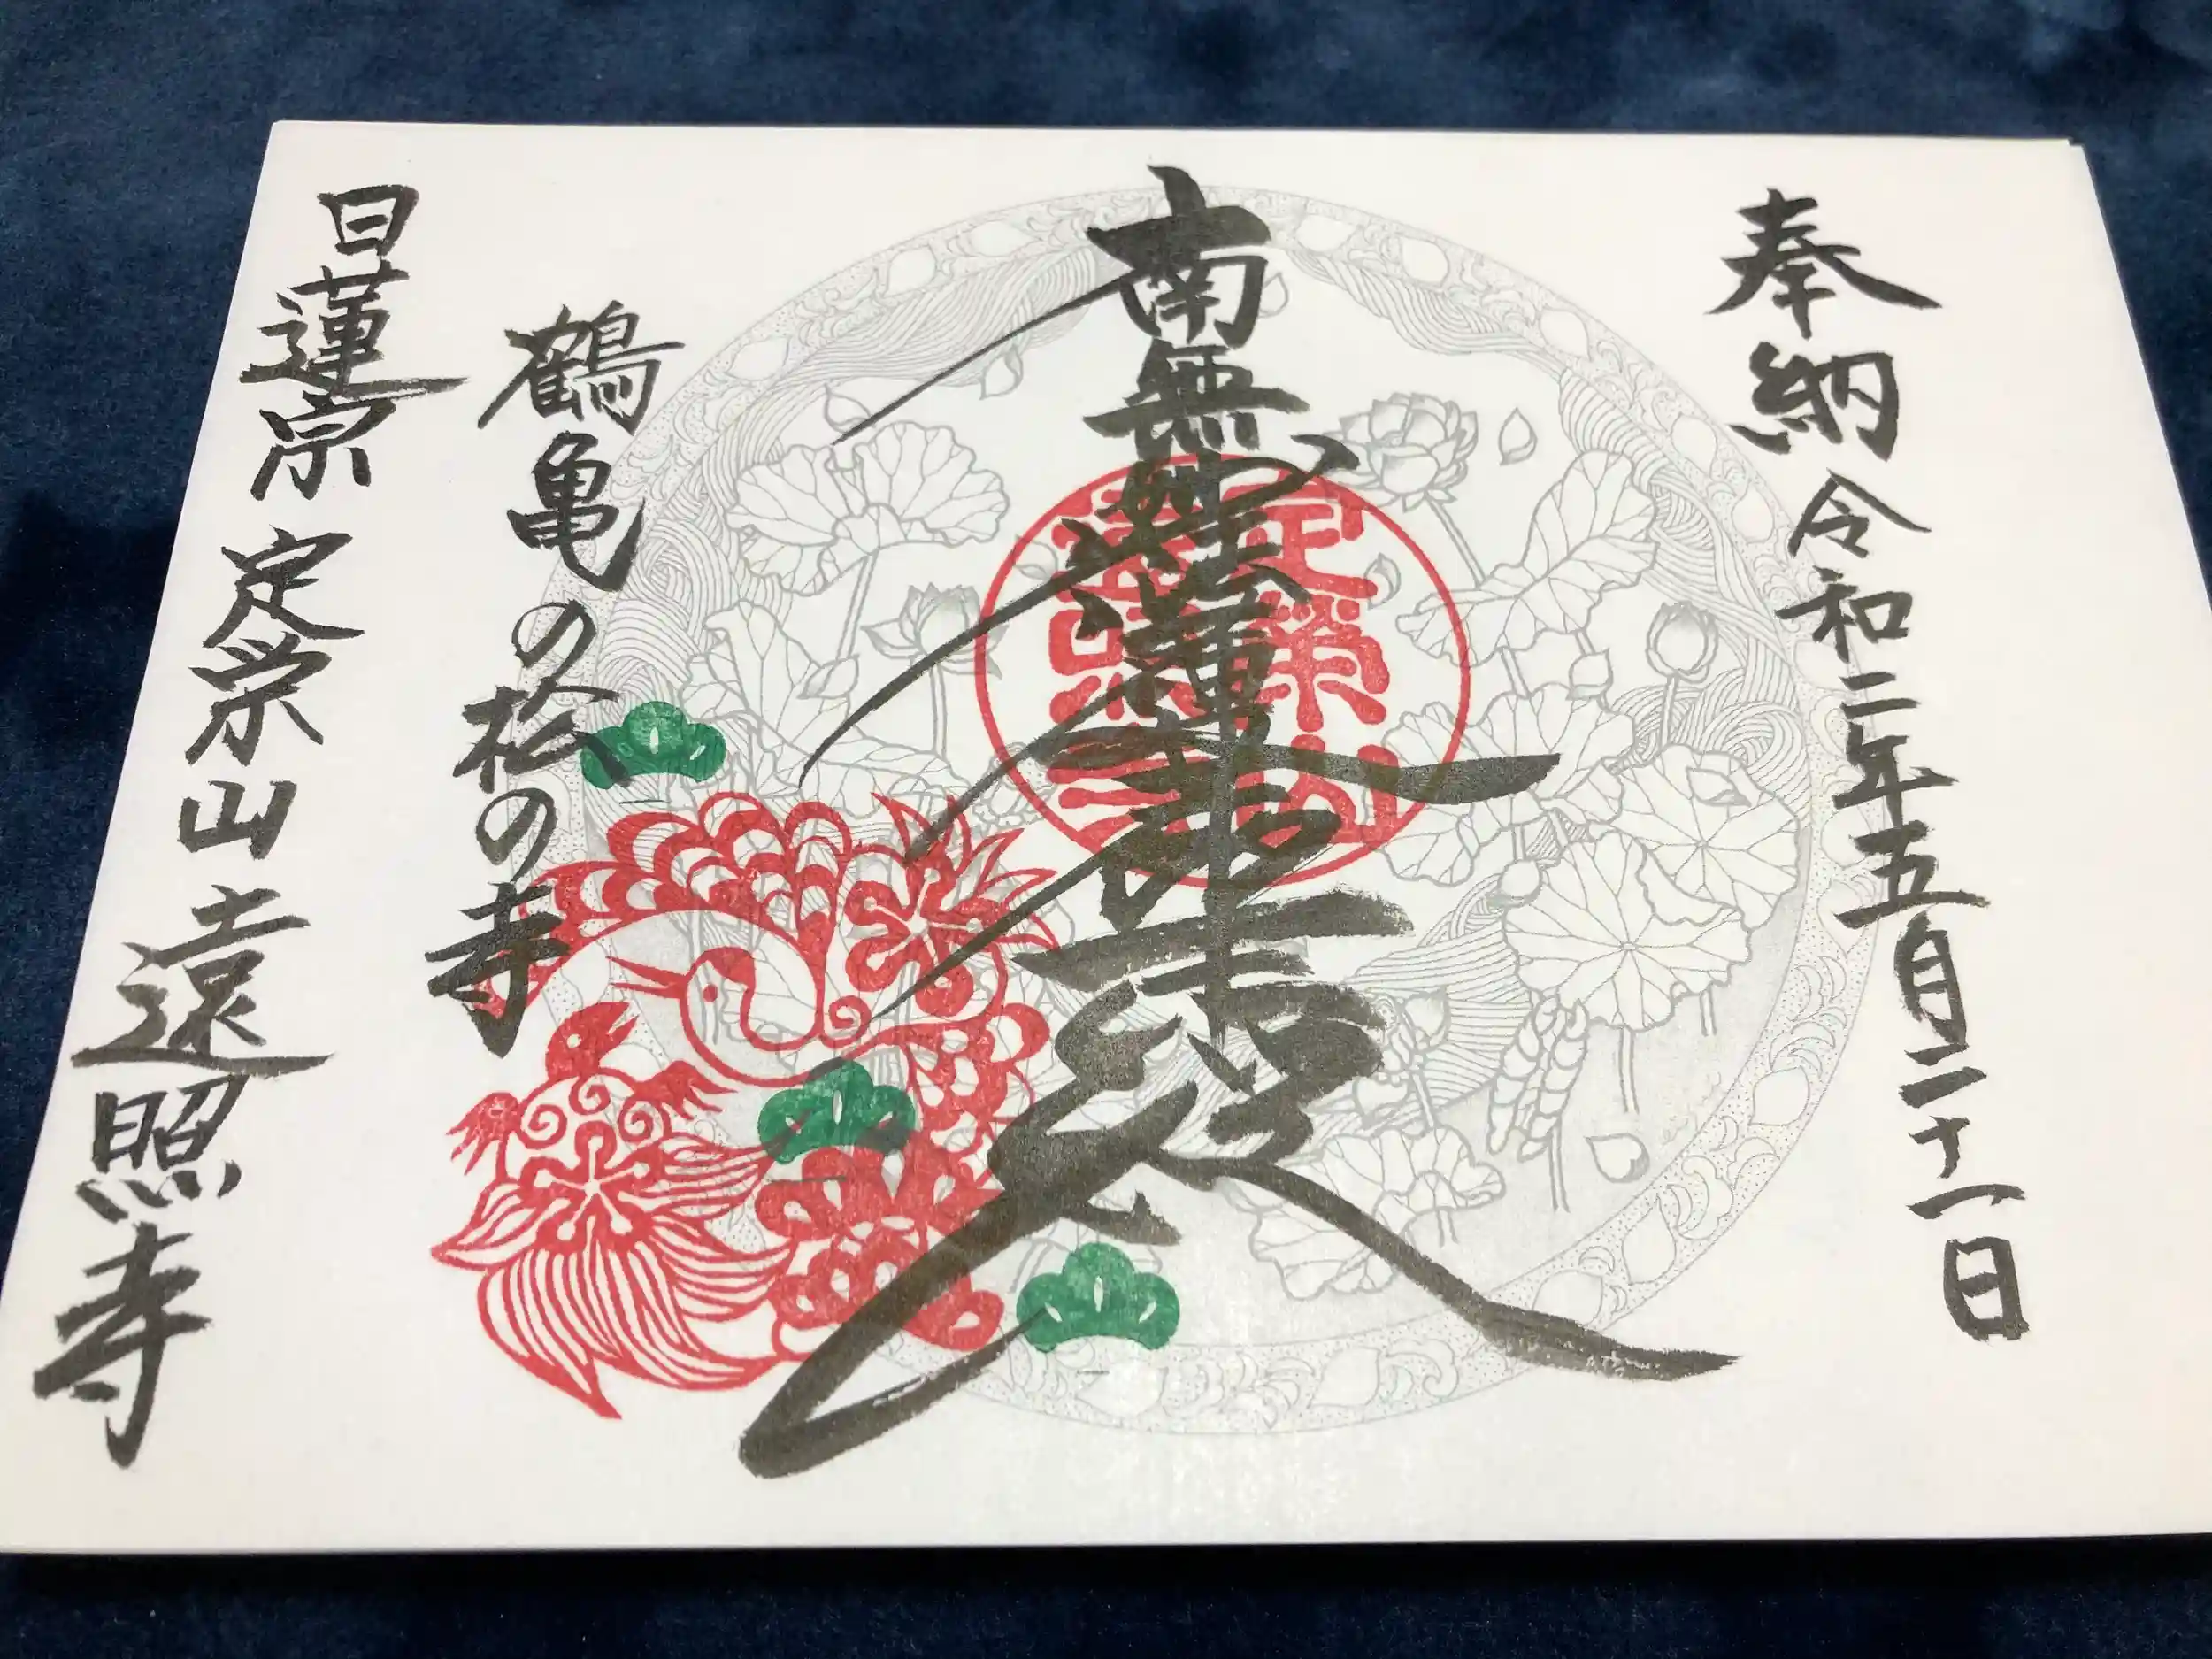 奉納 令和二年五月二十一日
南無妙法蓮華経
定榮山
遠照寺
鶴亀の松の寺
日蓮宗 定栄山 遠照寺